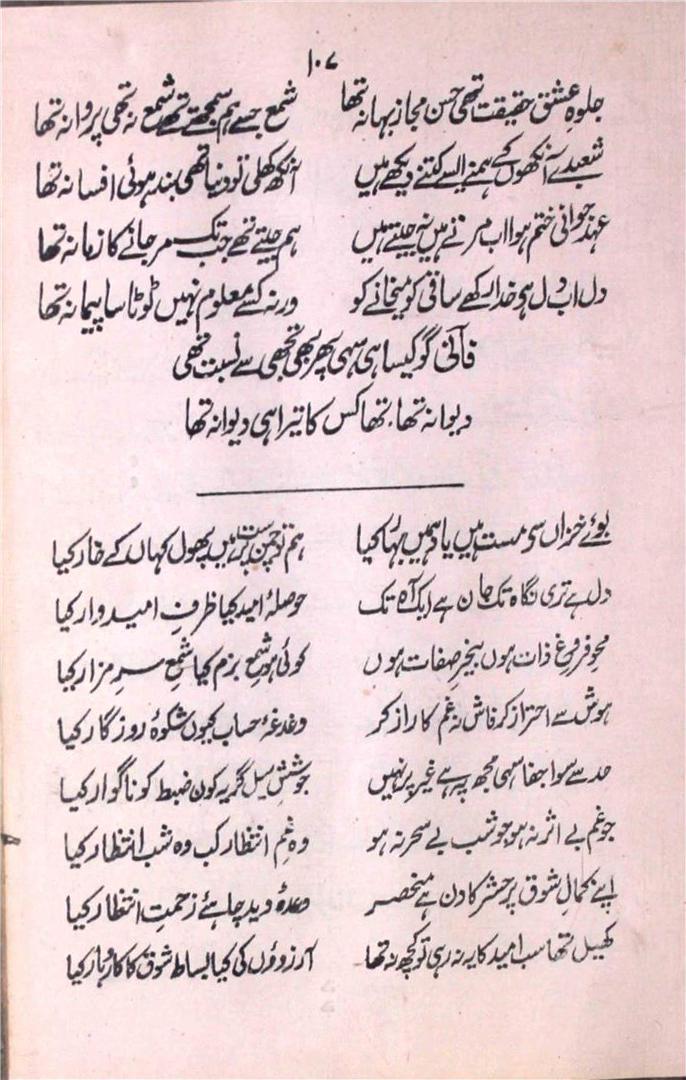 ۱۰۷
جلوہِ عشق حقیقت تھی حسن مجاز بہانہ تھا شمع جسے ہم سمجھتے تھے شمع نہ تھی پروانہ تھا
شعبدے آنکھوں کے ہمنے ایسے کتنے دیکھے ہیں آنکھ کھلی تو دنیا تھی بند ہوئی افسانہ تھا
عہد جوانی ختم ہوا اب مرتے ہیں نہ جیتے ہیں ہم جیتے تھے جب تک مر جانے کا زمانہ تھا
دل اب دل ہی خدا رکھے ساقی کو میخانے کو ورنہ کسے معلوم نہیں ٹوٹا سا پیمانہ تھا
فانی گو کیسا ہی سہی پھر بھی تجھی سے نسبت تھی
دیوانہ تھا، تھا کس کا تیرا ہی دیوانہ تھا
بوئے خزاں سی مست ہیں یاد ہمیں بہار کیا ہم تو چمن پرست ہیں پھول کہاں کے خار کیا
دل ہے تری نگاہ تک جان ہے ایک آہ تک حوصلۂ امید کیا ظرفِ امیدوار کیا
محو فروغِ ذات ہوں بیخبرِ صفات ہوں کوئی ہو شمع بزم کیا شمعِ سرِ مزار کیا
ہوش سے احتراز کر فاش نہ غم کا راز کر دغدغۂ حساب کیوں شکوۂ روزگار کیا
حد سے سوا جفا سہی مجھ پہ ہے غیر پر نہیں جوششِ سیلِ گریہ کون ضبط کو ناگوار کیا
جو غم بے اثر نہ ہو جو شب بے سحر نہ ہو وہ غمِ انتظار کب وہ شب انتظار کیا
اپنے کمالِ شوق پر حشر کا دن ہے منحصر وعدۂ دید چاہئے زحمتِ انتظار کیا
کھیل تھا سب امید کا یہ نہ رہی تو کچھ نہ تھا آرزوؤں کی کیا بساط شوق کا کاروبار کیا